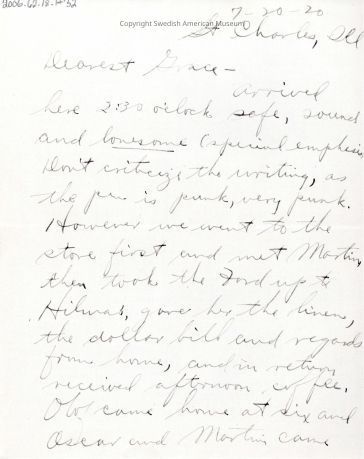 2006.62.18.1752
Copyright Swedish American Museum
7-20-20
St Charles, Ill
Dearest Grace-
Arrived
here 2:30 o'clock safe, sound
and lonesome (special emphasis
Don't criticize the writing, as
the pen is punk, very punk.
However we went to the
store first and met Martin,
then took the Ford up to
Hilmas, gave her the linen,
the dollar bill and regards
from home, and in return
received afternoon coffee.
came home at six and
Oscar and Martin came